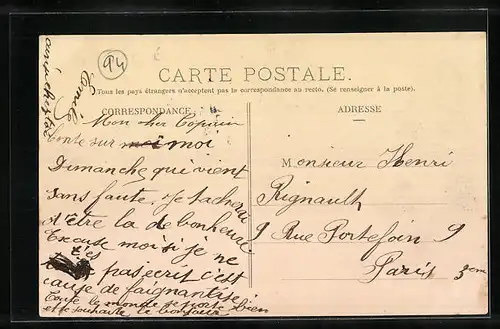 94
CARTE POSTALE.
Tous les pays étrangers n'acceptent pas la correspondance au recto. (Se renseigner à la poste).
CORRESPONDANCE
ADRESSE
Mon cher Copain
conte sur moi
Dimanche qui vient
sans faute, je tacherai
d'être la de bonheure
Excuse moi si je ne
t'es pas ecrit c'est
cause de faignantise
Toute le monde se porte bien
et te souhaite le bonjour
Camille
Monsieur Henri
Rignault
9 Rue Portefoin 9
Paris 3em